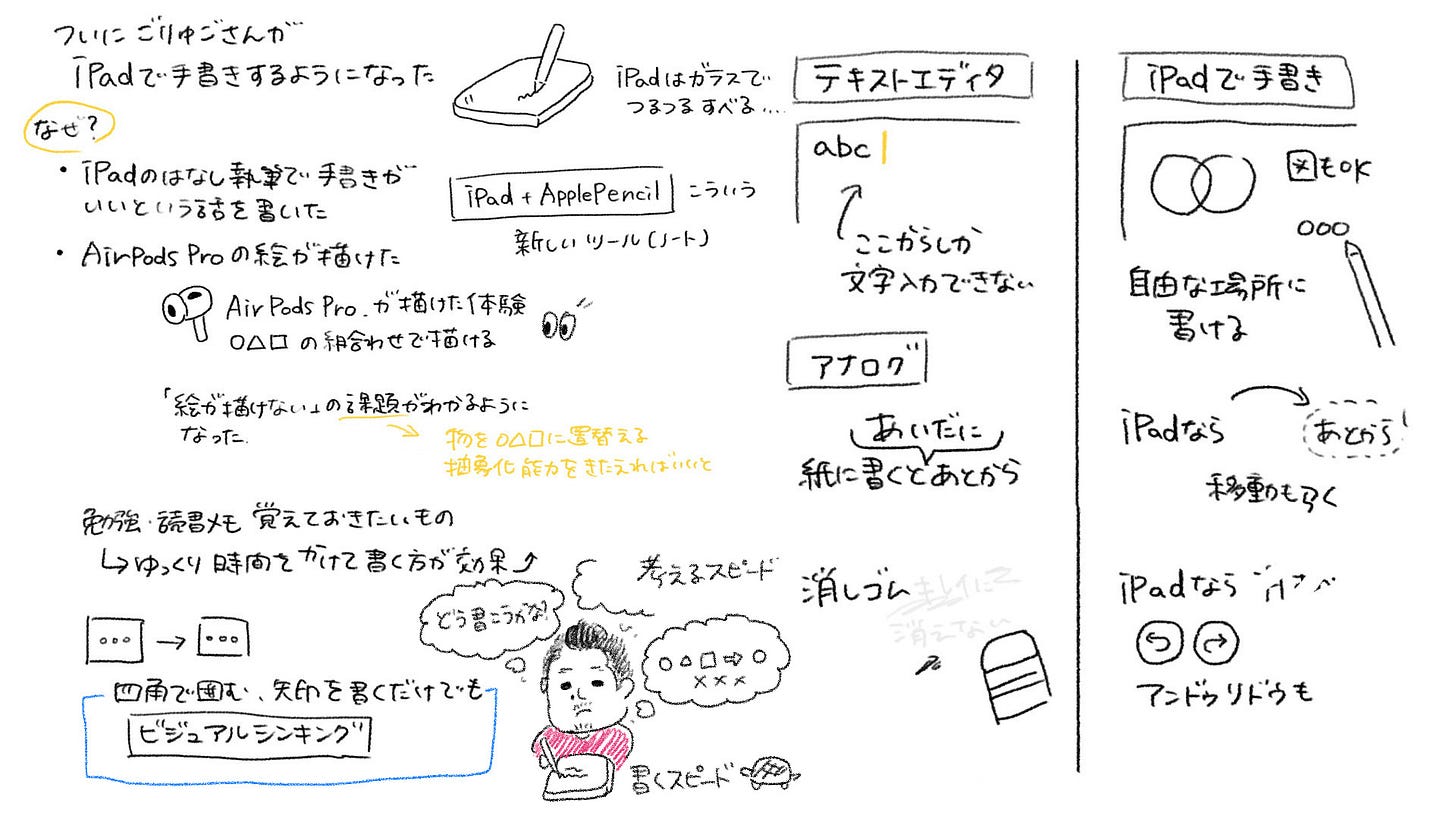 ついに ごりゅごさんが
iPadで手書きするようになった
なぜ?
・iPadのはなし執筆で手書きが
いいという話を書いた
・AirPods Proの絵が描けた
AirPods Pro.が描けた体験
○△□の組合わせで描ける
「絵が描けない」の課題がわかるように
なった.
物を○△□に置替える
抽象化能力をきたえればいいと
勉強・読書メモ 覚えておきたいもの
↳ゆっくり時間をかけて書く方が効果⤴
○○○→○○○
四角で囲む、矢印を書くだけでも
ビジュアルシンキング
iPadはガラスで
つるつるすべる...
iPad+ApplePencil こういう
新しいツール(ノート)
考えるスピード
どう書こうかな?
○△□⇨○
×××
書くスピード
テキストエディタ
abc
ここからしか
文字入力できない
アナログ
あいだに
紙に書くとあとから
消しゴム キレイに
消えない
iPadで手書き
図もOK
○○○
自由な場所に
書ける
iPadなら あとから
移動もラク
iPadなら
アンドゥリドゥも